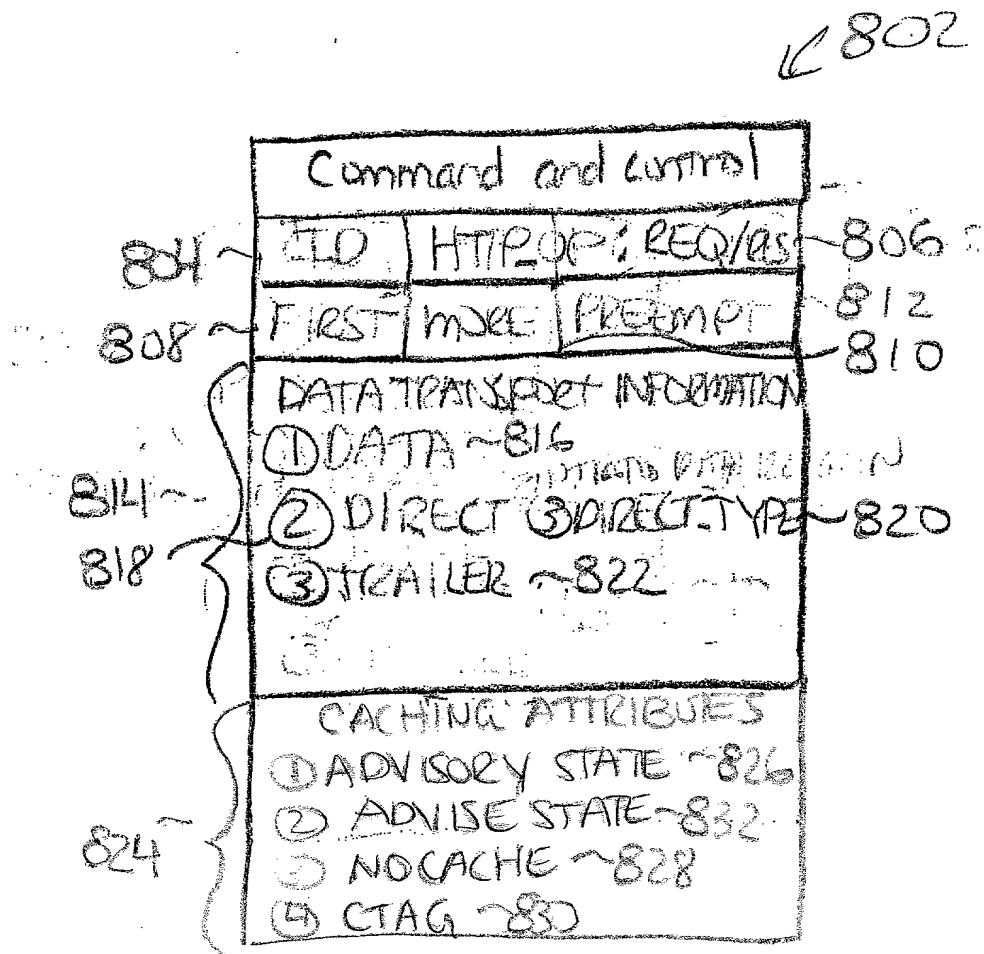 802
Command and control
804 CID HTTP_OP: REQ/RES 806
808 FIRST MORE PREEMPT 812
810
DATA TRANSPORT INFORMATION
① DATA ~816
814
818 ② DIRECT ③ DIRECT-TYPE 820
③ TRAILER ~822
CACHING ATTRIBUTES
① ADVISORY STATE ~826
② ADVISE STATE ~832
824
NOCACHE ~828
④ CTAG ~830